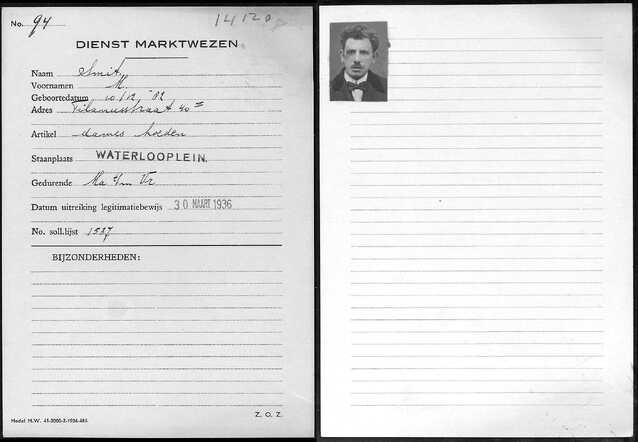 No. 94
14120
DIENST MARKTWEZEN
Naam Smit,
Voornamen M.
Geboortedatum 10/12 '02
Adres straat 40
Artikel dames hoeden
Staanplaats WATERLOOPLEIN.
Gedurende Ma t/m Vr
Datum uitreiking legitimatiebewijs 30 MAART 1936
No. soll.lijst 1537
BIJZONDERHEDEN:
Model M.W. 41-3000-3-1936-485
Z. O. Z.